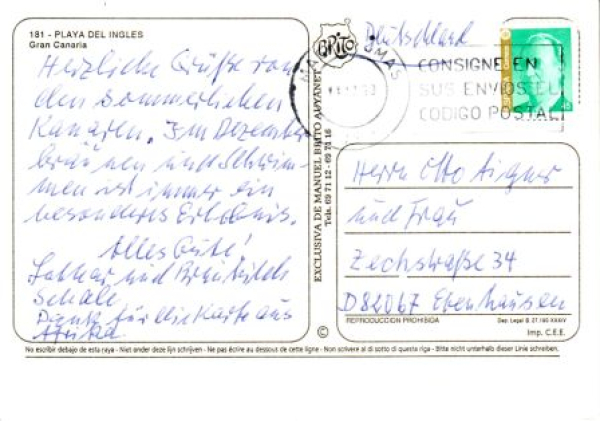 181 - PLAYA DEL INGLES
Gran Canaria
Herzliche Grüße von
den sommerlichen
Kanaren. Im Dezember
bräunen und Schwim-
men ist immer ein
besonderes Erlebnis.
Alles Gute!
Lothar und Brunhilde
Schale
Dank für die Karte aus
Afrika
BRITO
EXCLUSIVA DE MANUEL BRITO AUYANET
Tels. 69 71 12 - 69 71 16
©
Deutschland
CONSIGNE EN
SUS ENVIOS EL
CODIGO POSTAL
Herrn Otto Aigner
und Frau
Zechstraße 34
D 82067 Ebenhausen
REPRODUCCION PROHIBIDA
Dep. Legal B. 27.180-XXXIV
Imp. C.E.E.
No escribir debajo de esta raya - Niet onder deze lijn schrijven - Ne pas écrire au dessous de cette ligne - Non scrivere al di sotto di questa riga - Bitte nicht unterhalb dieser Linie schreiben.